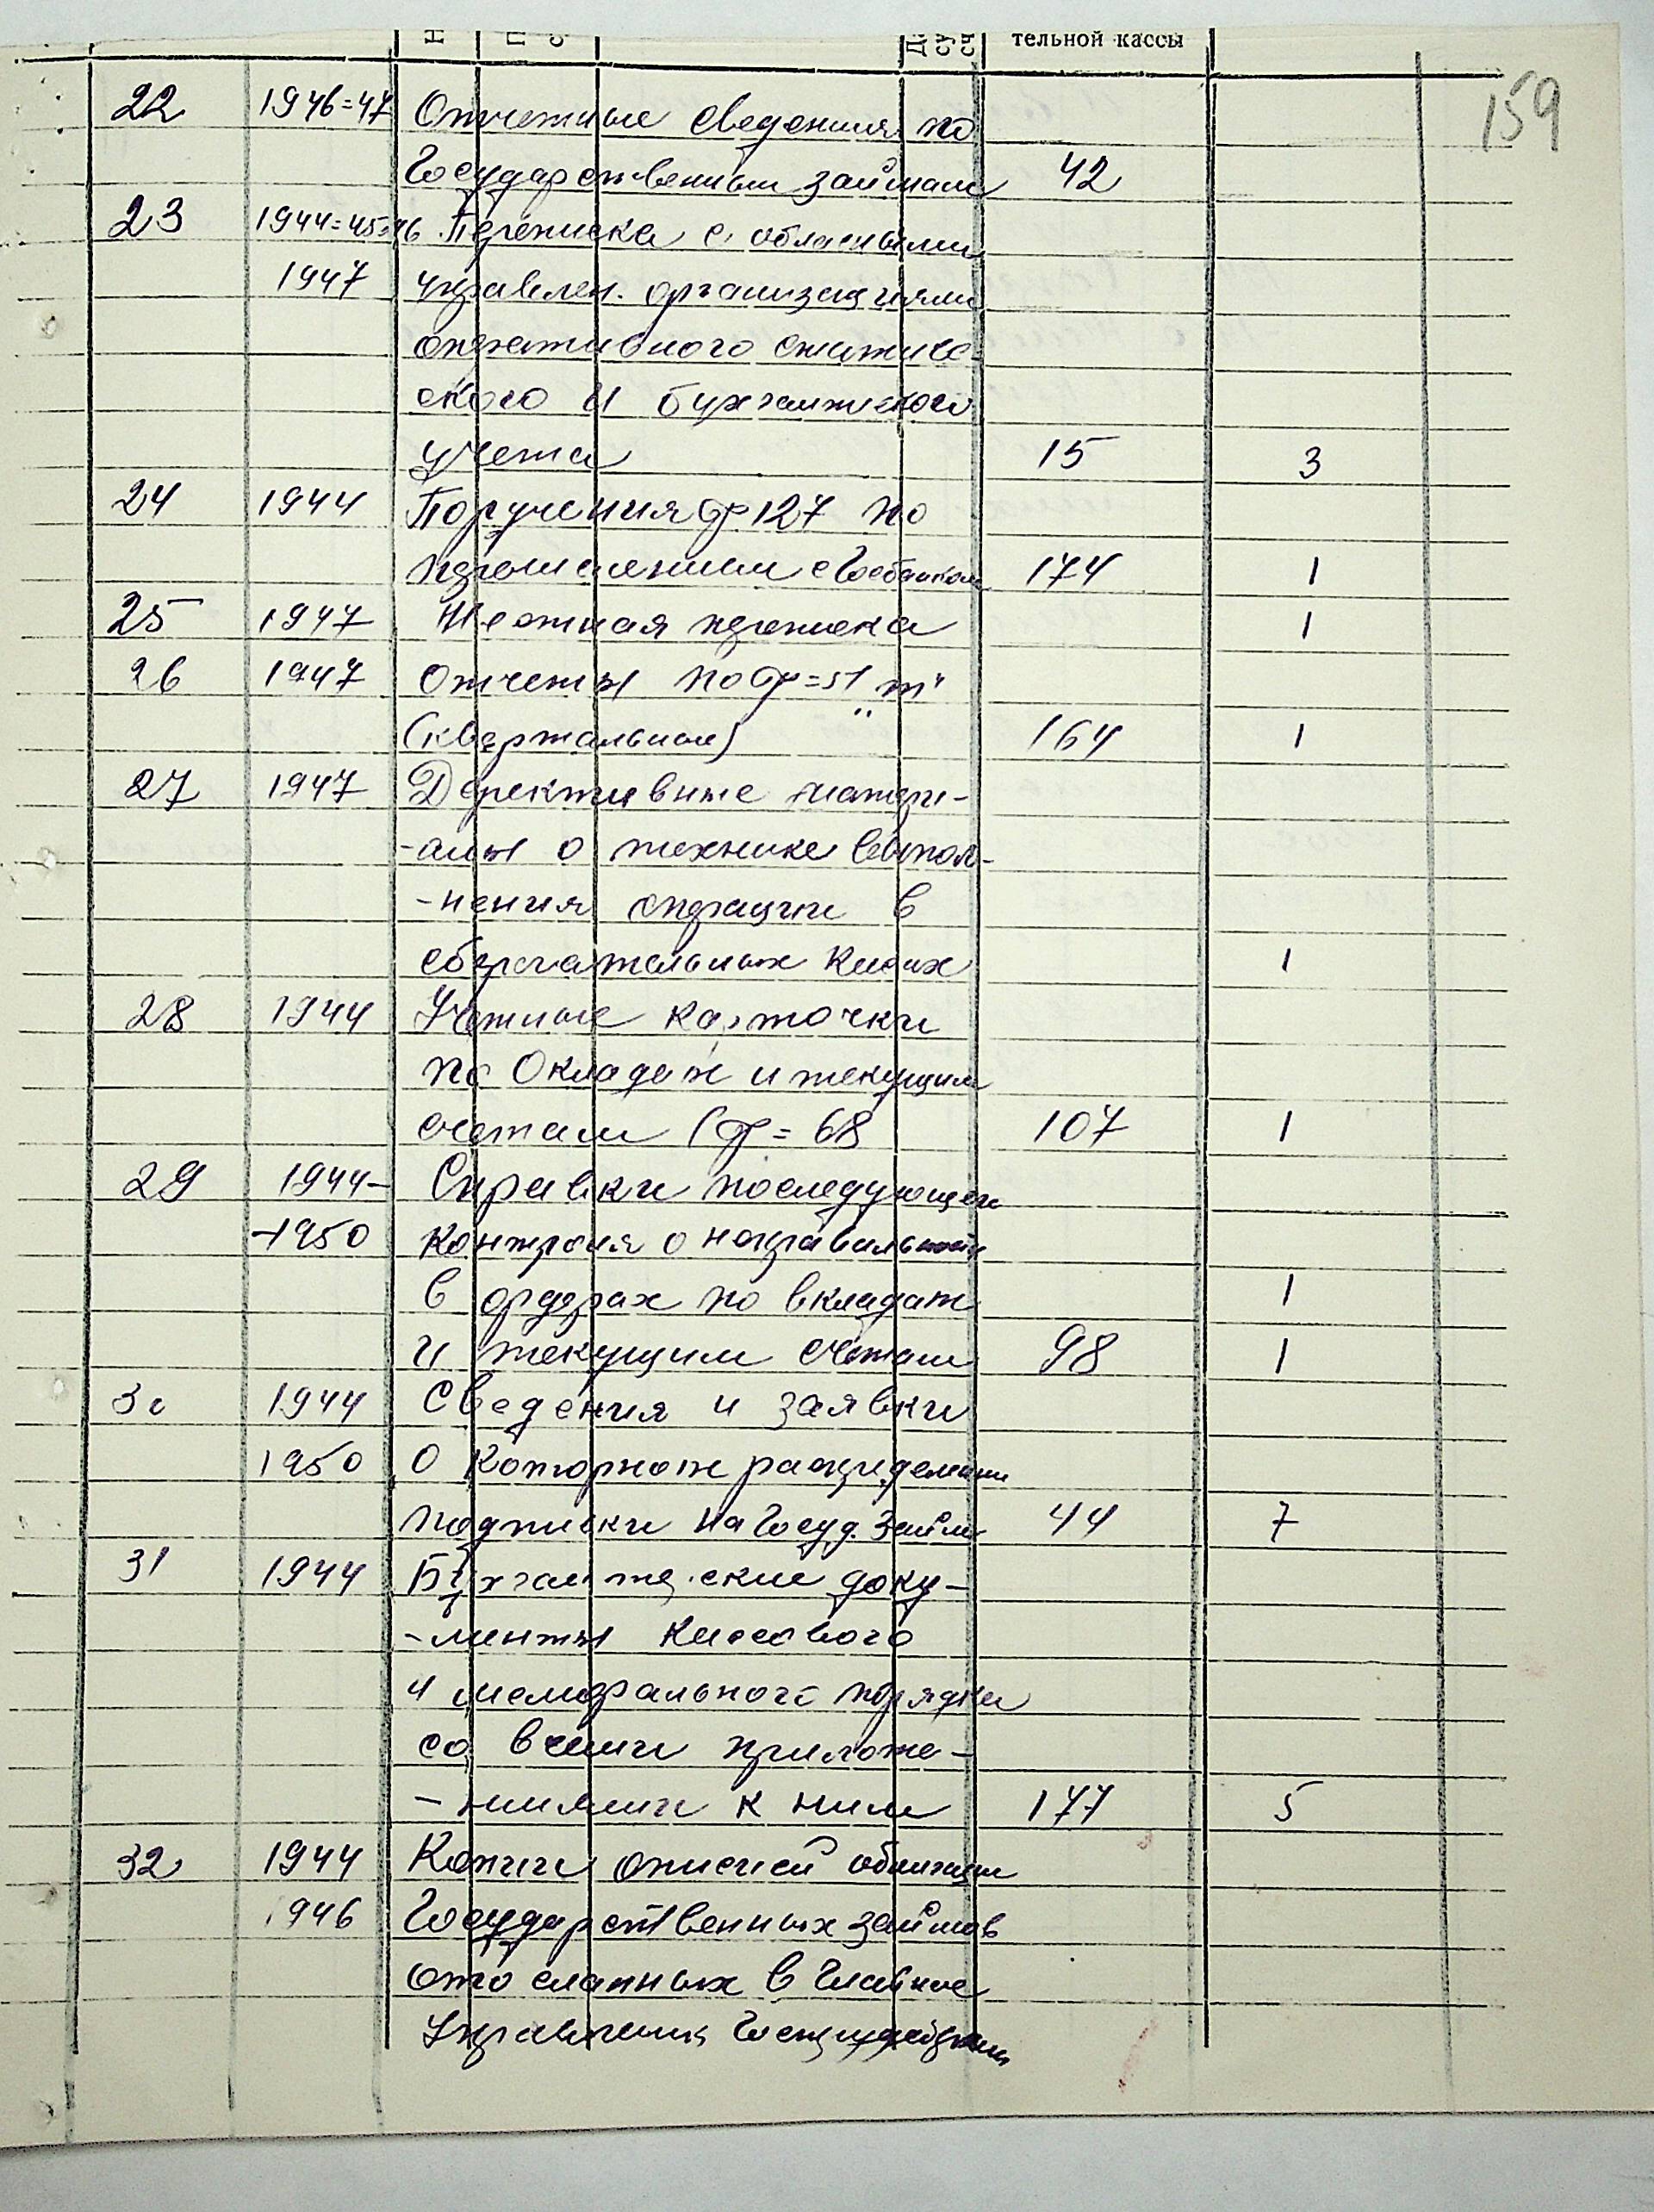 тельной кассы
159
22 1946=47 Отчетные сведения по
Государственным займам 42
23 1944=45=46 Переписка с областными
1947 управлен. организациями
оперативного статиче-
ского и бухгалтерского
учета 15 3
24 1944 Поручения ф. 127 по
с Госбанком 174 1
25 1947 переписка 1
26 1947 Отчеты по ф=51 "т"
(квартальные) 164 1
27 1947 Дерективные матери-
-алы о технике выпол-
-нения операции в
сберегательных кассах 1
28 1944 Учетные карточки
по Окладам и текущим
счетам (ф=68 107 1
29 1944- Справки последующего
-1950 контроля о неправильности
в ордерах по вкладам 1
и текущим счетам 98 1
30 1944 Сведения и заявки
1950 О распределении
подписки на Госуд. займ 44 7
31 1944 Бухгалтерские доку-
-менты кассового
и мемориального порядка
со всеми приложе-
-ниями к ним 177 5
32 1944 Копии описей облигаций
1946 Государственных займов
отосланных в Главное
Управление